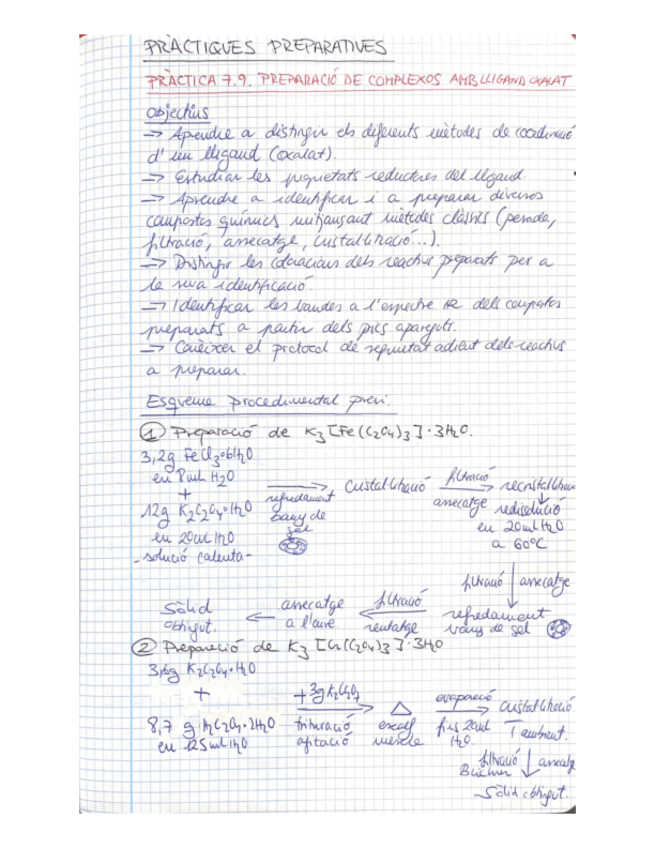 PRÀCTIQUES PREPARATIVES
PRÀCTICA 7.9. PREPARACIÓ DE COMPLEXOS AMB LLIGAND OXALAT
Objectius
→ Apendre a distingir els diferents mètodes de coordinació
d'un lligand (oxalat).
→ Estudiar les propietats reductores del lligand.
→ Aprendre a identificar i a preparar diversos
compostos químics mitjançant mètodes clàssics (pesada,
filtració, assecatge, cristal·lització...).
→ Distingir les coloracions dels reactius preparats per a
la seva identificació.
→ Identificar les bandes a l'espectre IR dels compostos
preparats a partir dels pics apareguts.
→ Conèixer el protocol de seguretat adient dels reactius
a preparar.
Esquema procedimental previ.
① Preparació de K3[Fe(C2O4)3]·3H2O.
3,2g FeCl3·6H2O
en 8mL H2O
+
12g K2C2O4·H2O
en 20mL H2O
- solució calenta -
refredament
bany de
gel
cristal·lització
filtració
assecatge
recristal·lització
redissolució
en 20mL H2O
a 60ºC
filtració assecatge
refredament
bany de gel
filtració
rentatge
assecatge
a l'aire
Sòlid
obtingut.
② Preparació de K3[Cr(C2O4)3]·3H2O
3,6g K2C2O4·H2O
+
8,7 g H2C2O4·2H2O
en 125mL H2O
+3g K2Cr2O7
trituració
agitació
△
escalf
mescla
evaporació
fins 20mL
H2O
cristal·lització
T ambient.
filtració
Büchner
assecatg
Sòlid obtingut.